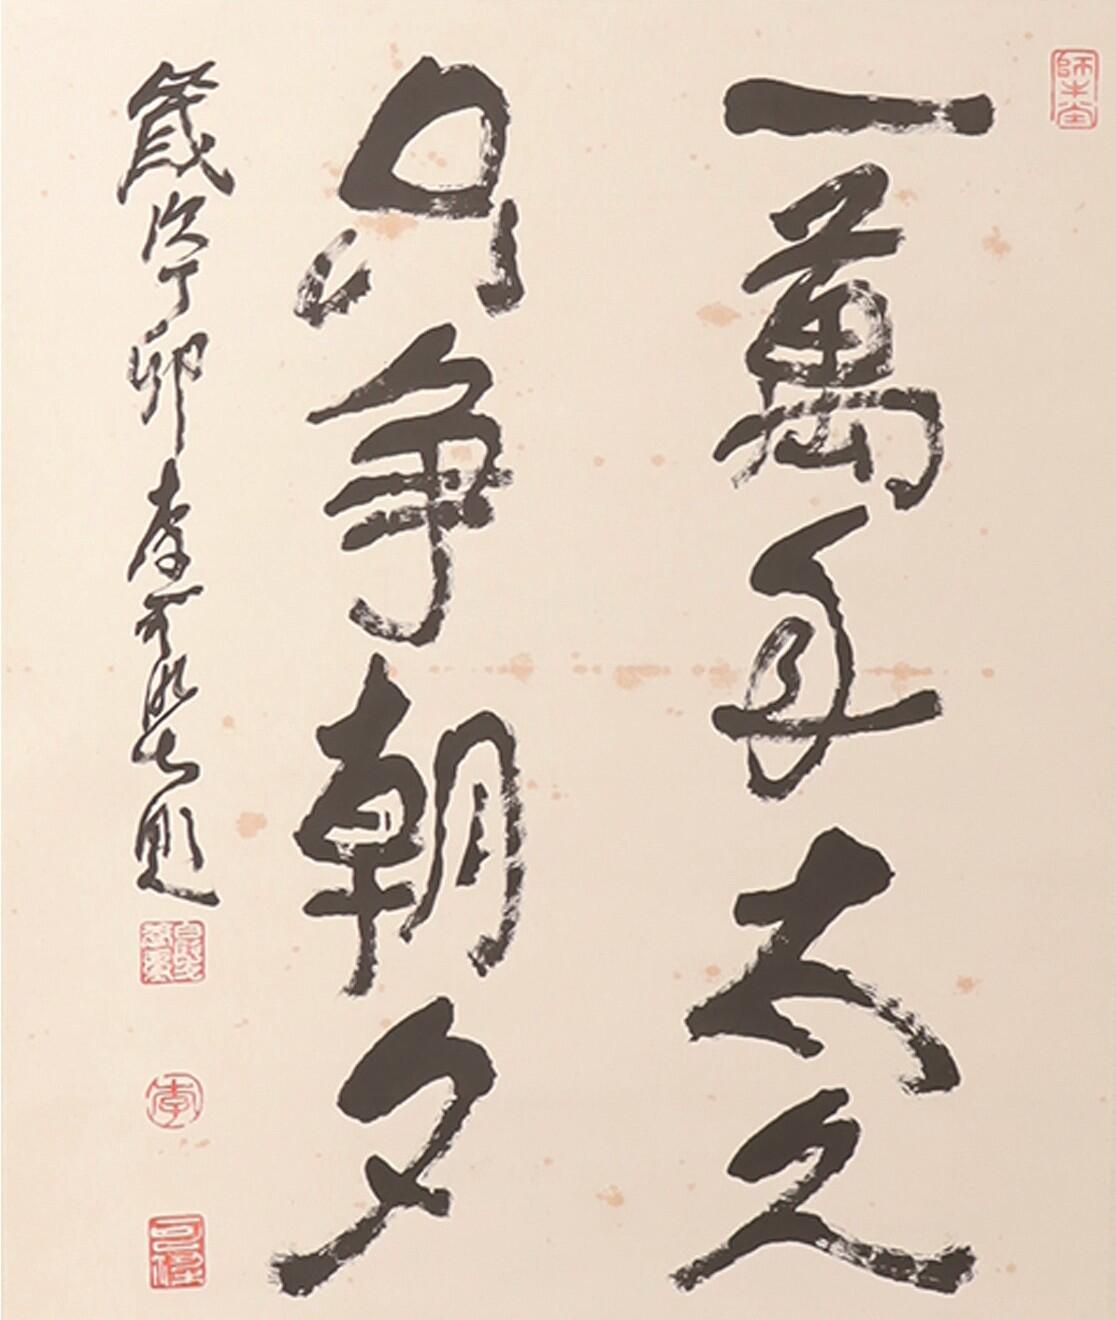 一萬年太久
只争朝夕
歲次丁卯李可染題
師牛堂
李
可染